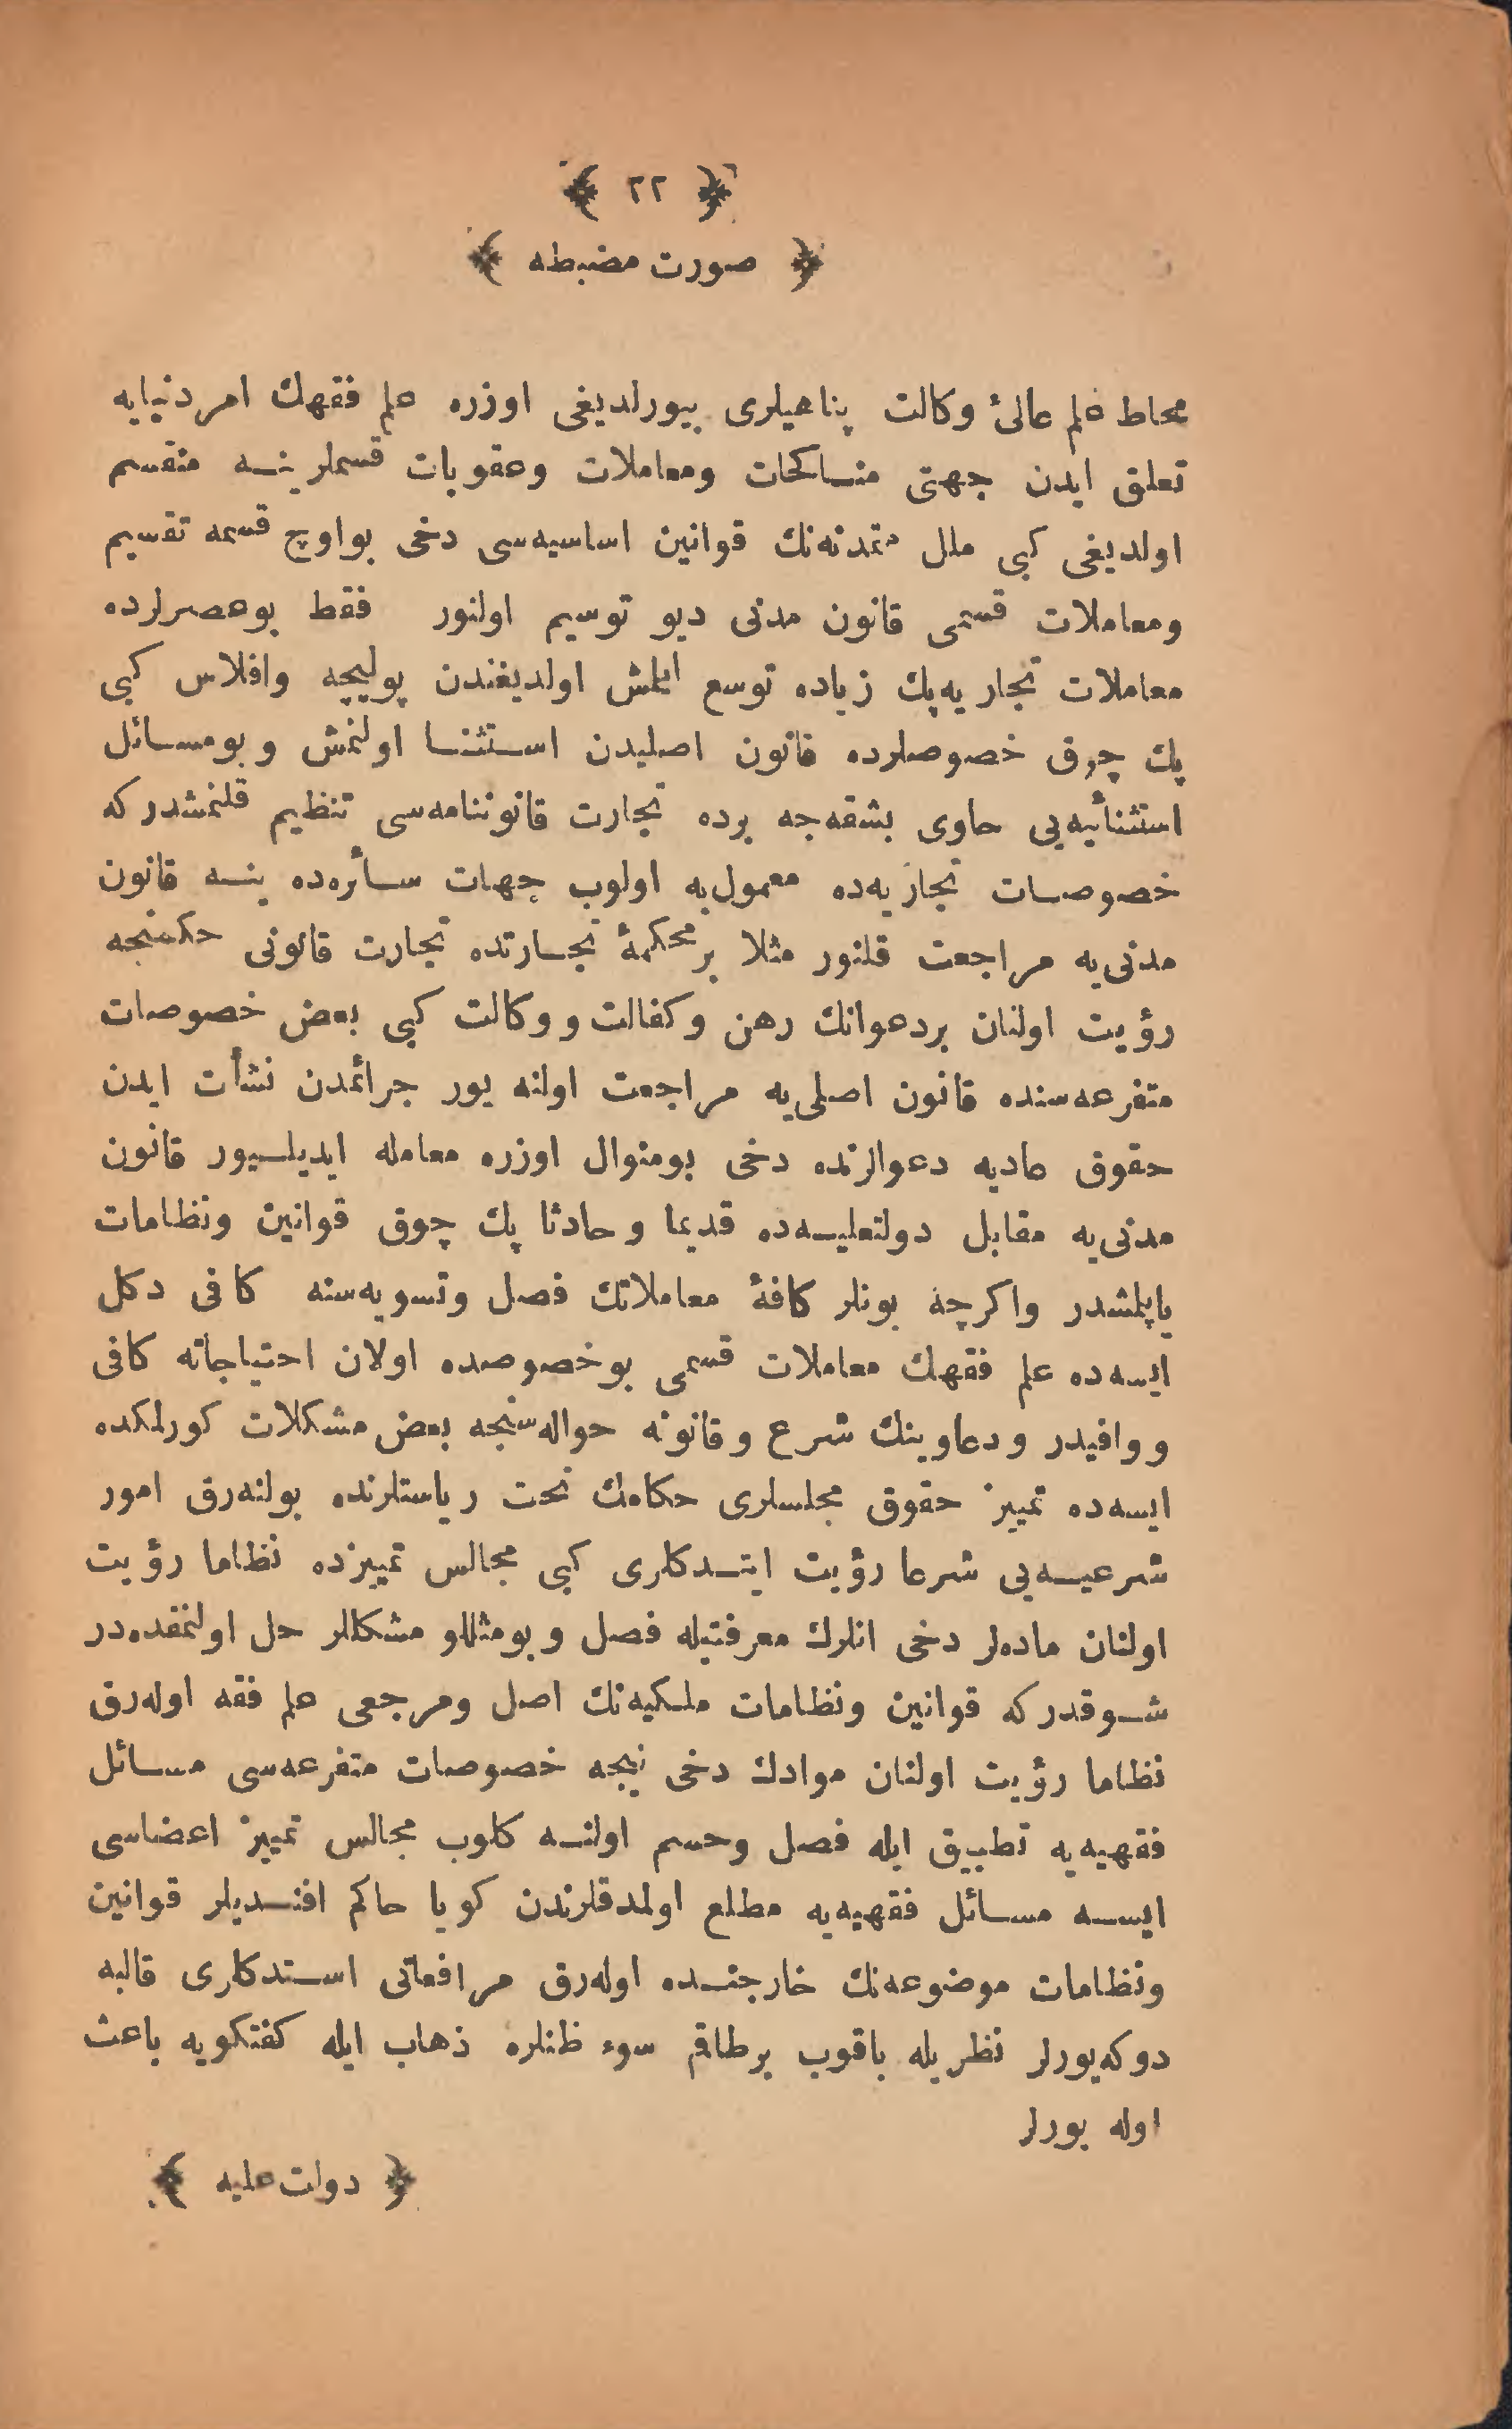 ﴿ ٢٢ ﴾
﴿ صورت مضبطه ﴾
محاط علم عالئ وكالت پناهيلرى بيورلديغى اوزره علم فقهك امر دنيايه
تعلق ايدن جهتى مناكحات ومعاملات وعقوبات قسملرينه منقسم
اولديغى كبى ملل متمدنه‌نك قوانين اساسيه‌سى دخى بواوچ قسمه تقسيم
ومعاملات قسمى قانون مدنى ديو توسيم اولنور فقط بوعصرلرده
معاملات تجاريه‌پك زياده توسع ايلمش اولديغندن پوليچه وافلاس كبى
پك چوق خصوصلرده قانون اصليدن استثنا اولنمش وبومسائل
استثنائيه‌يى حاوى بشقه‌جه برده تجارت قانوننامه‌سى تنظيم قلنمشدركه
خصوصات تجاريه‌ده معمول‌به اولوب جهات سائره‌ده ينه قانون
مدنى‌يه مراجعت قلنور مثلا بر محكمهٔ تجارتده تجارت قانونى حكمنجه
رؤيت اولنان بردعوانك رهن وكفالت ووكالت كبى بعض خصوصات
متفرعه‌سنده قانون اصلى‌يه مراجعت اولنه يور جرائمدن نشأت ايدن
حقوق عاديه دعوالرنده دخى بومنوال اوزره معامله ايديليور قانون
مدنى‌يه مقابل دولتعليه‌ده قديما وحادثا پك چوق قوانين ونظامات
ياپلمشدر واكرچه بونلر كافهٔ معاملاتك فصل وتسويه‌سنه كافى دكل
ايسه‌ده علم فقهك معاملات قسمى بوخصوصده اولان احتياجاته كافى
ووافيدر ودعاوينك شرع وقانونه حواله‌سنجه بعض مشكلات كورلمكده
ايسه‌ده تمييز حقوق مجلسلرى حكامك تحت رياستلرنده بولنه‌رق امور
شرعيه‌يى شرعا رؤيت ايتدكلرى كبى مجالس تمييزده نظاما رؤيت
اولنان ماده‌لر دخى انلرك معرفتيله فصل وبومثللو مشكللر حل اولنمقده‌در
شوقدركه قوانين ونظامات ملكيه‌نك اصل ومرجعى علم فقه اوله‌رق
نظاما رؤيت اولنان موادك دخى نيجه خصوصات متفرعه‌سى مسائل
فقهيه‌يه تطبيق ايله فصل وحسم اولنه كلوب مجالس تمييز اعضاسى
ايسه مسائل فقهيه‌يه مطلع اولمدقلرندن كويا حاكم افنديلر قوانين
ونظامات موضوعه‌نك خارجنده اوله‌رق مرافعاتى استدكلرى قالبه
دوكه‌يورلر نظريله باقوب برطاقم سوء ظنلره ذهاب ايله كفتكويه باعث
اوله يورلر
﴿ دولت عليه ﴾